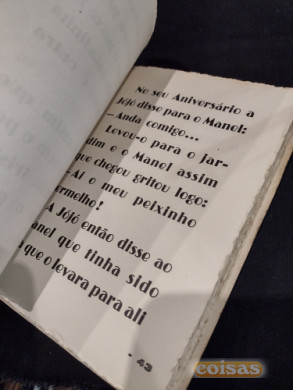 No seu Aniversário a
Jójó disse para o Manel:
— Anda comigo...
Levou-o para o jar-
dim e o Manel assim
que chegou gritou logo:
— Ai o meu peixinho
ermelho!
— A Jójó então disse ao
anel que tinha sido
a que o levara para ali
- 43
coisas